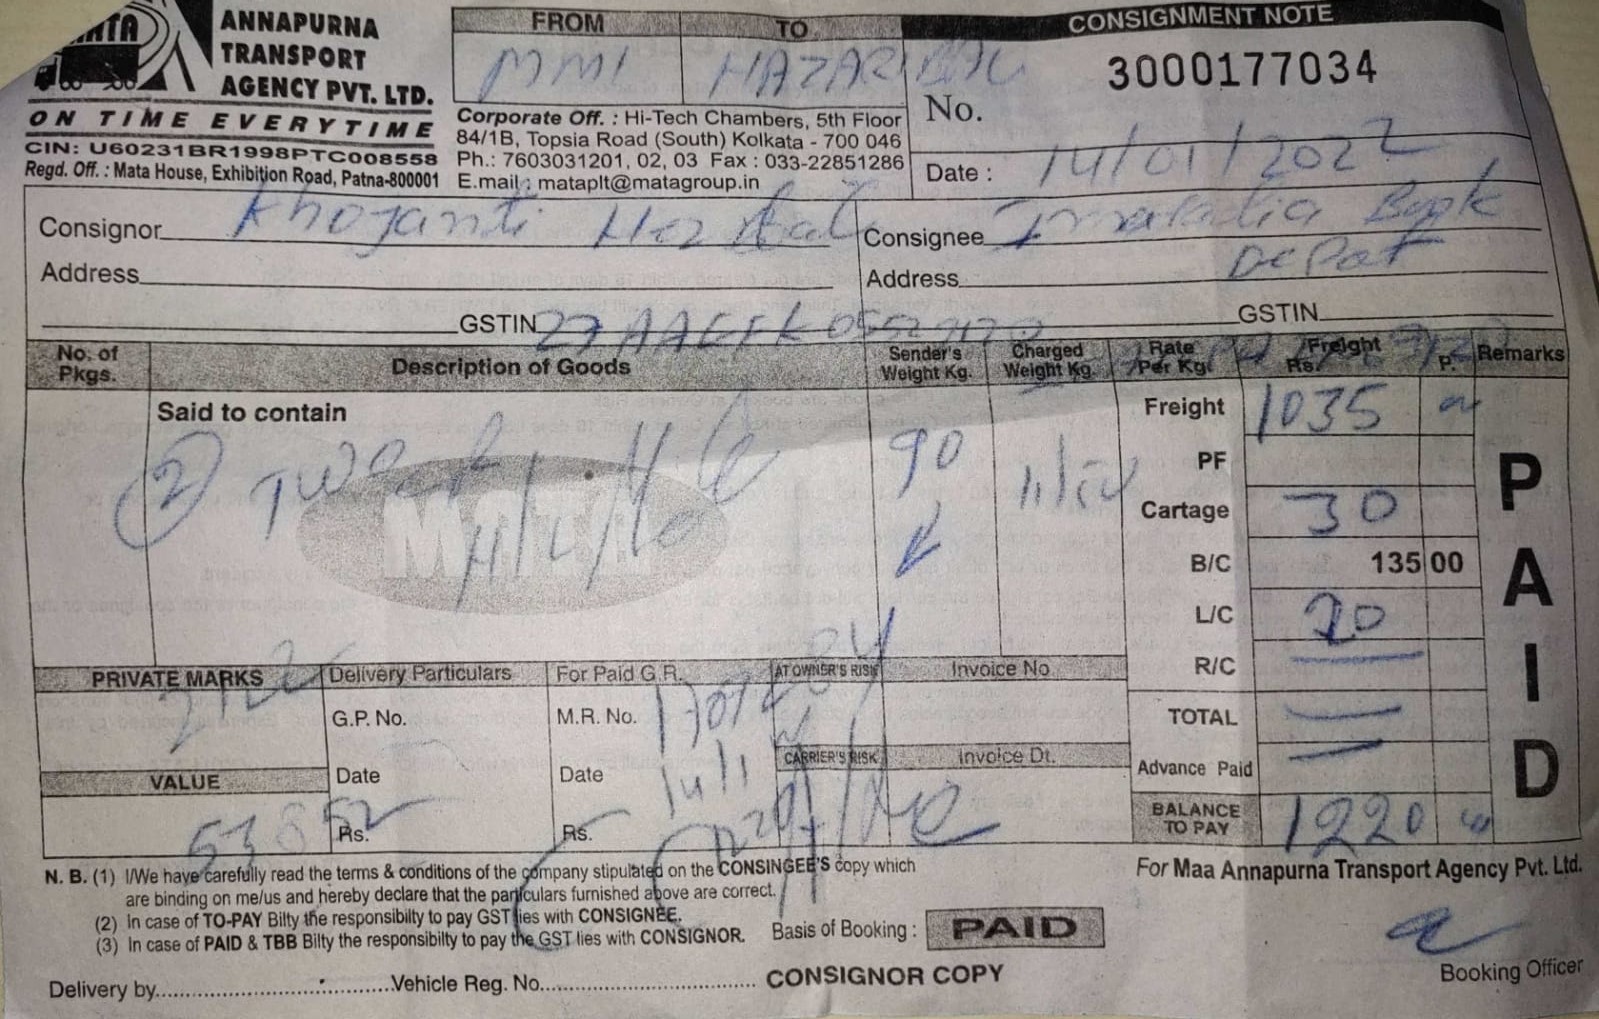 ANNAPURNA
TRANSPORT
AGENCY PVT. LTD.
ON TIME EVERYTIME
CIN: U60231BR1998PTC008558
Regd. Off. : Mata House, Exhibition Road, Patna-800001
FROM TO
MMI HAZARIBAG
Corporate Off. : Hi-Tech Chambers, 5th Floor
84/1B, Topsia Road (South) Kolkata - 700 046
Ph.: 7603031201, 02, 03 Fax : 033-22851286
E.mail : mataplt@matagroup.in
CONSIGNMENT NOTE
3000177034
No.
Date : 14/01/2022
Consignor
Address
GSTIN
Consignee Book
Depot
Address
GSTIN
No. of Pkgs. Description of Goods Sender's Weight Kg. Charged Weight Kg. Rate Per Kg. Freight Rs. P. Remarks
Said to contain
2
90
Freight 1035
PF
Cartage 30
B/C 135 00
L/C 20
R/C
TOTAL
Advance Paid
BALANCE TO PAY 1220
PAID
PRIVATE MARKS
VALUE
Delivery Particulars
G.P. No.
Date
Rs.
For Paid G.R.
M.R. No.
Date
Rs.
AT OWNER'S RISK
CARRIER'S RISK
Invoice No.
Invoice Dt.
N. B. (1) I/We have carefully read the terms & conditions of the company stipulated on the CONSINGEE'S copy which
are binding on me/us and hereby declare that the particulars furnished above are correct.
(2) In case of TO-PAY Bilty the responsibilty to pay GST lies with CONSIGNEE.
(3) In case of PAID & TBB Bilty the responsibilty to pay the GST lies with CONSIGNOR.
Basis of Booking : PAID
For Maa Annapurna Transport Agency Pvt. Ltd.
Booking Officer
Delivery by Vehicle Reg. No. CONSIGNOR COPY